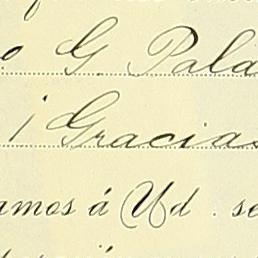 o G. Pala
¡Gracias
amos á Ud. se